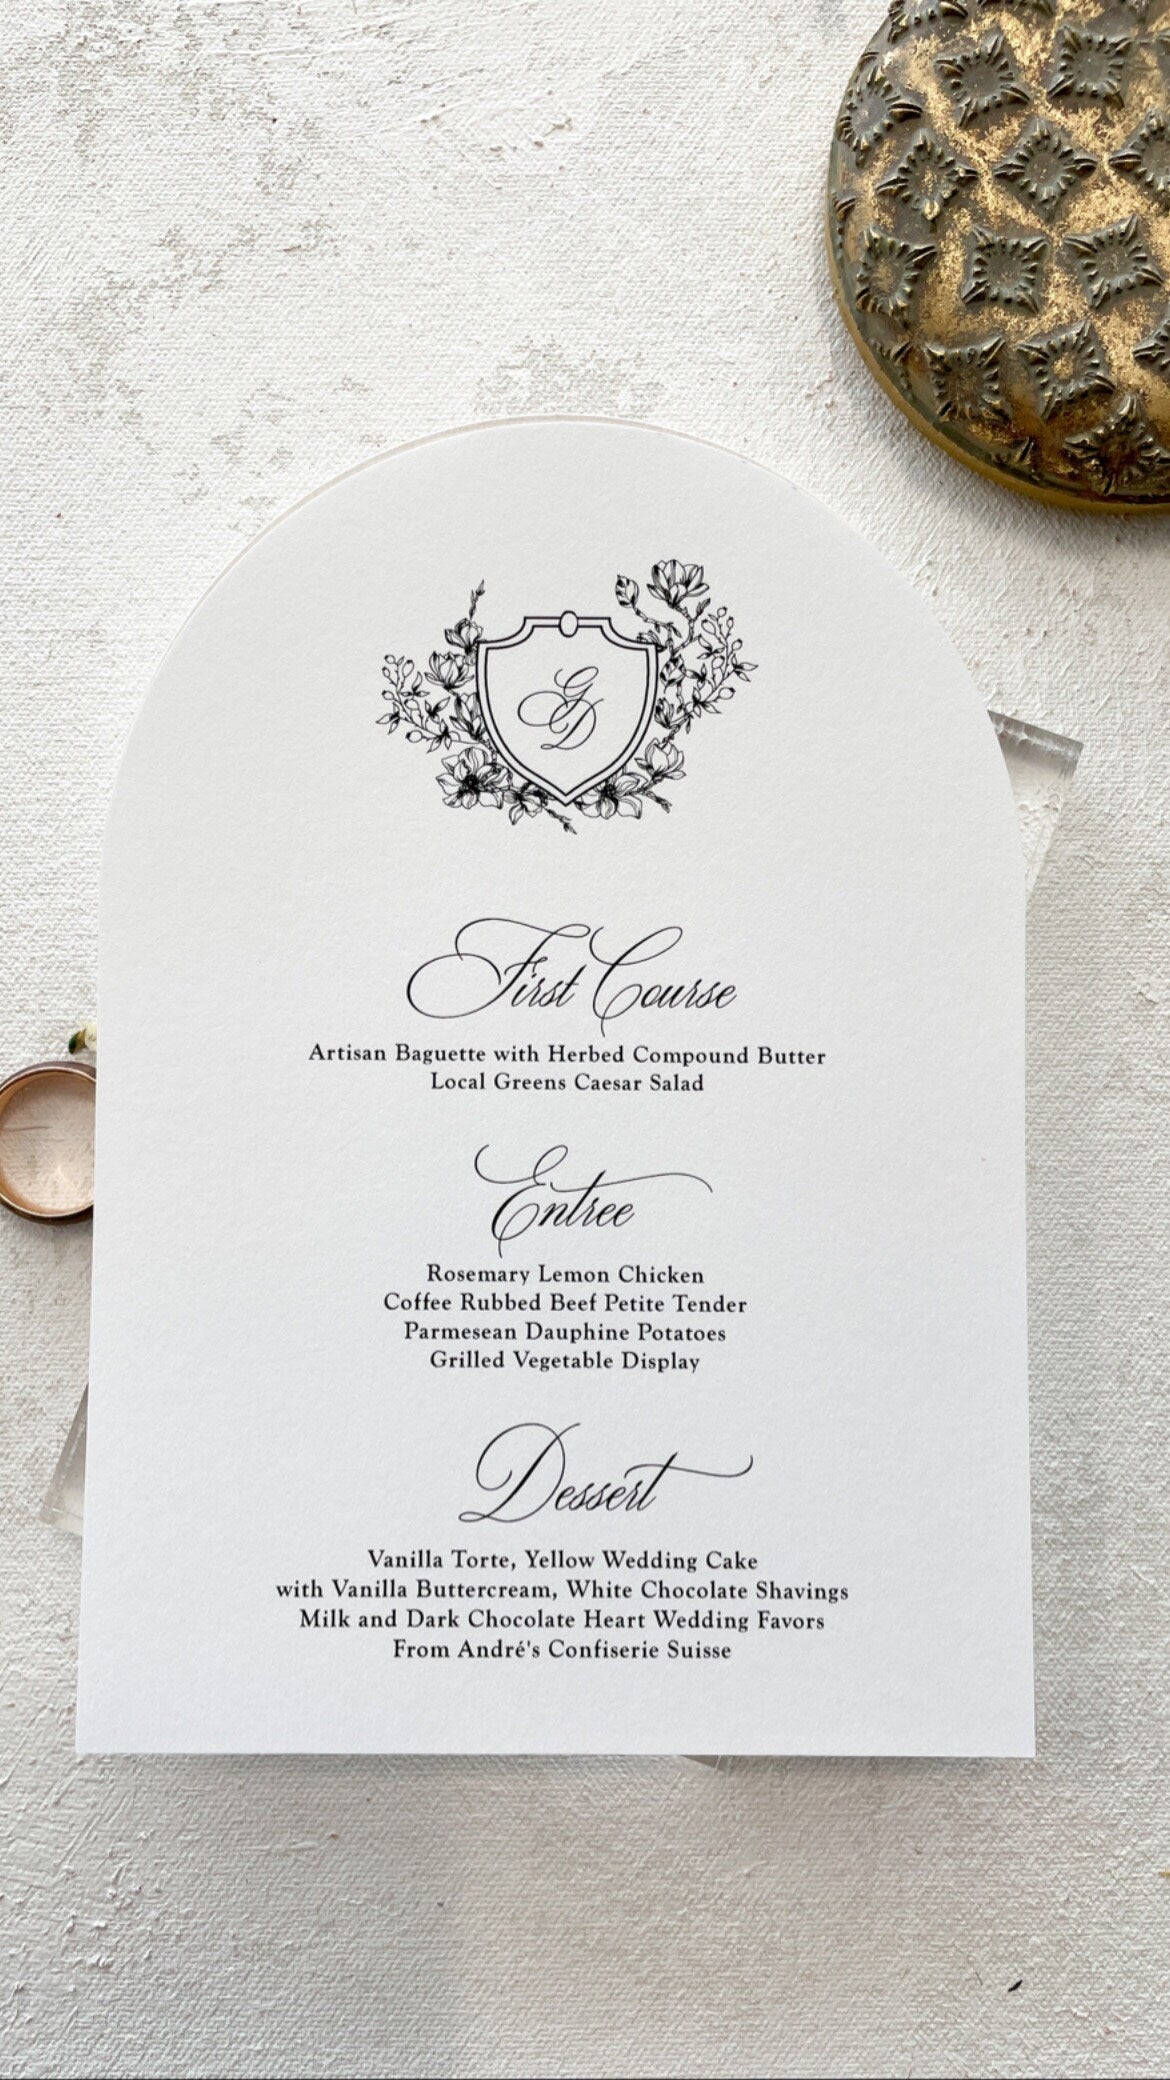 G
D
First Course
Artisan Baguette with Herbed Compound Butter
Local Greens Caesar Salad
Entree
Rosemary Lemon Chicken
Coffee Rubbed Beef Petite Tender
Parmesean Dauphine Potatoes
Grilled Vegetable Display
Dessert
Vanilla Torte, Yellow Wedding Cake
with Vanilla Buttercream, White Chocolate Shavings
Milk and Dark Chocolate Heart Wedding Favors
From André's Confiserie Suisse